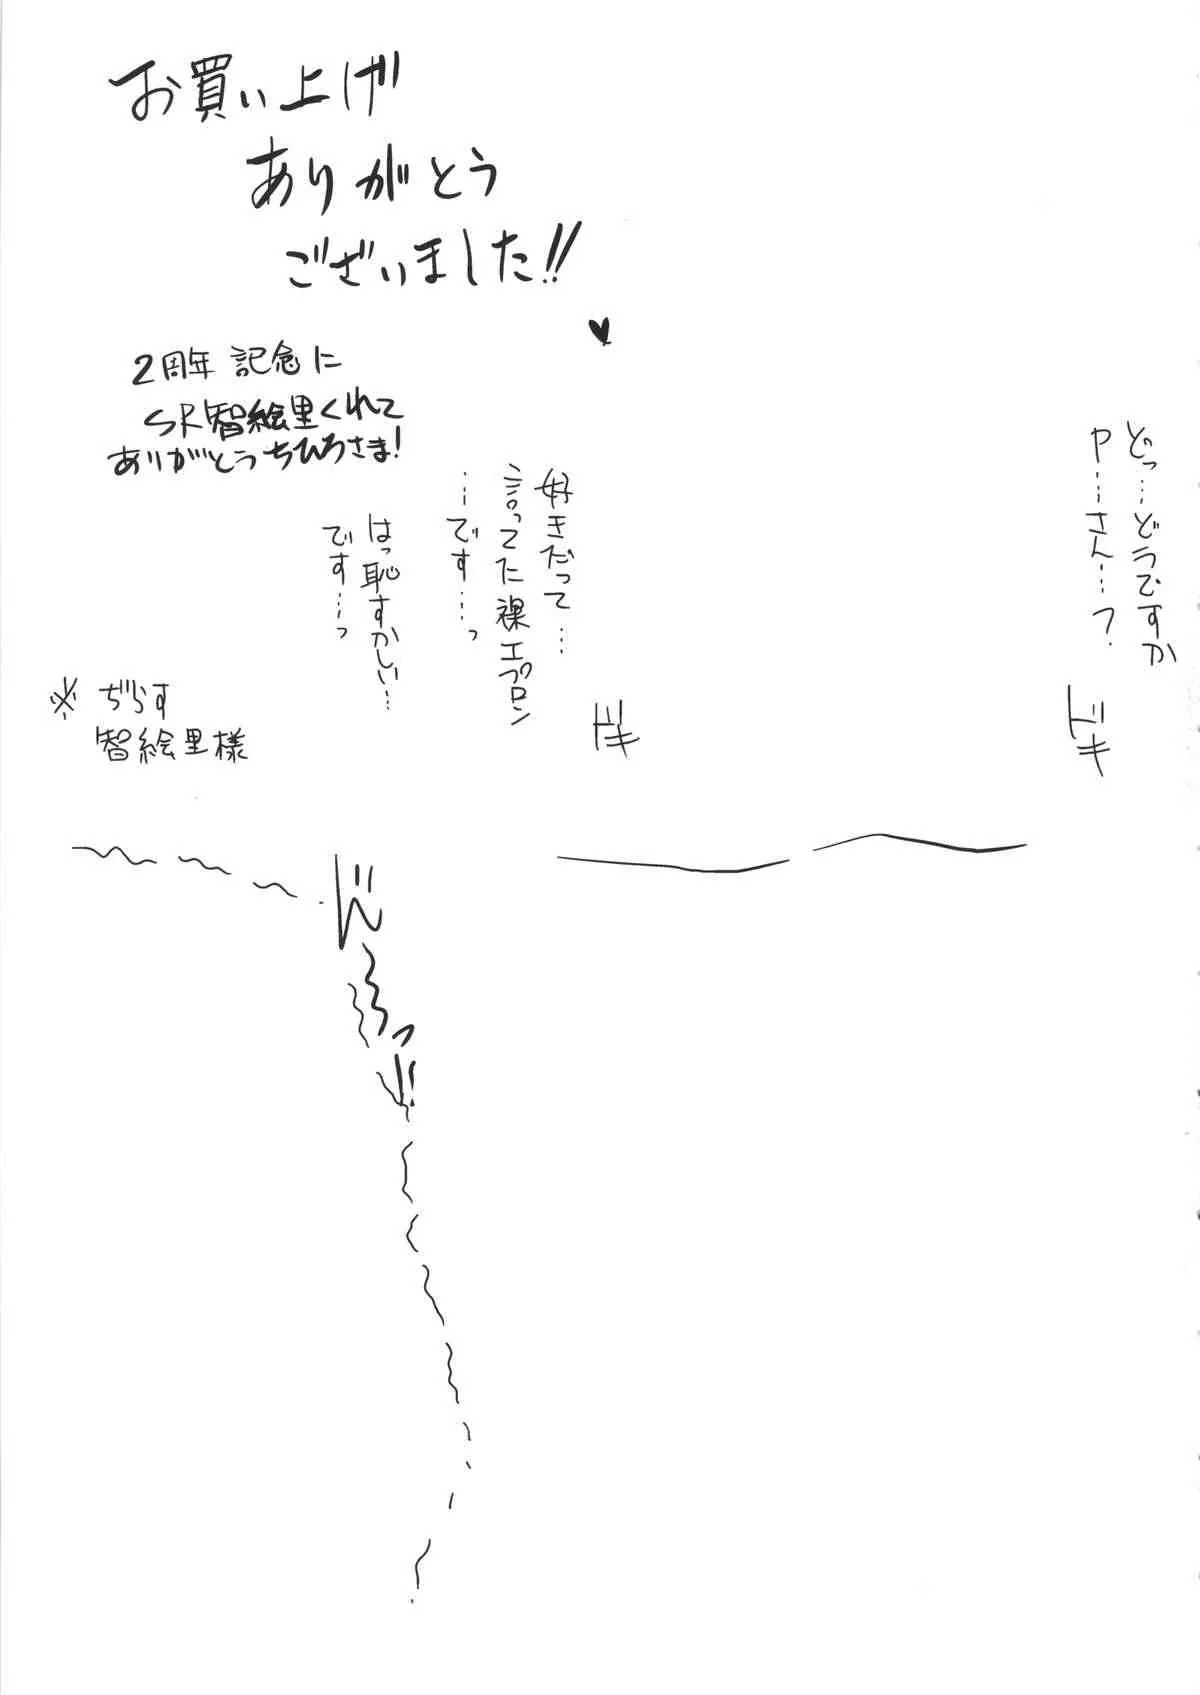 お買い上げ
ありがとう
ございました!!
2周年 記念に
SR智絵里くれて
ありがとうちひろさま!
どっ…どうですか
P…さん…?
ドキ
好きだって…
言ってた裸エプロン
…です…っ
ドキ
はっ恥ずかしい…
です…っ
※
智絵里様